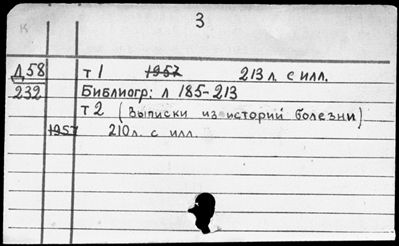 К
3
Д58 т 1 1957 213 л. с илл.
232 Библиогр: л 185-213
т 2 (выписки из историй болезни)
1957 210 л. с илл.